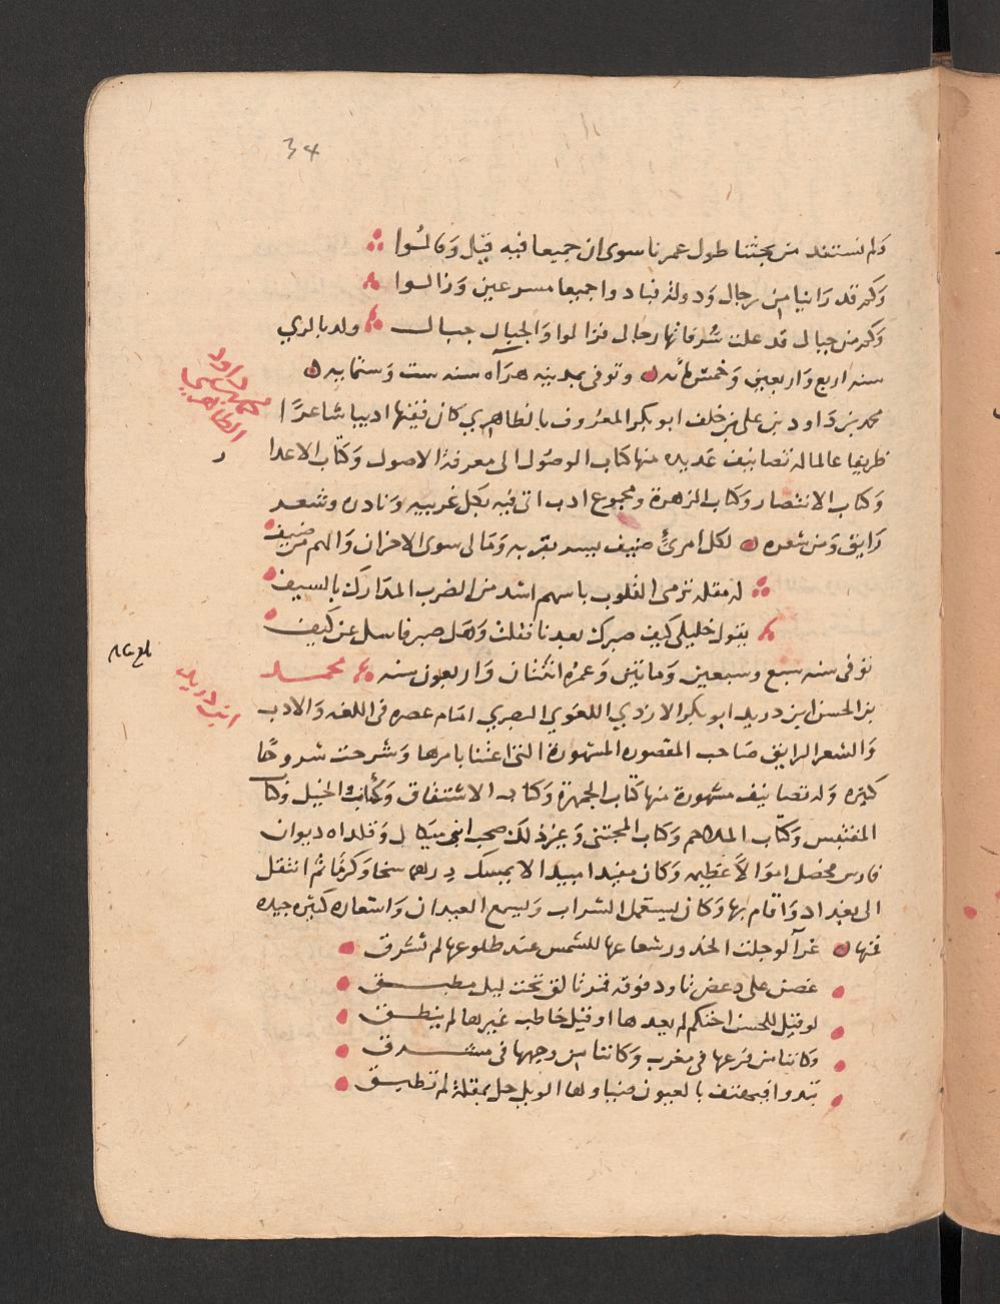 34
ولم نستفد من بحثنا طول عمرنا سوى ان جمعنا فيه قيل وقالوا
وكم قد راينا من رجال ودولة فبادوا جميعا مسرعين وزالوا
وكم من جبال قد علت شرفاتها رجال فزالوا والجبال جبال ولد بالري
سنه اربع واربعين وخمش مائه وتوفى بمدينه هراه سنه ست وستمايه
محمد بن داود بن على بن خلف ابو بكر المعروف بالظاهري كان فقيها اديبا شاعرا
ظريفا عالما له تصانيف عديده منها كتاب الوصول الى معرفة الاصول وكتاب الاعذا
وكتاب الانتصار وكتاب الزهرة ومجموع ادب اتى فيه بكل غريبه ونادره وشعر
رايق ومن شعره لكل امرئ ضيف يسر بقربه ومالى سوى الاحزان والهم من ضيف
له مقله ترمى القلوب باسهم اشد من الضرب المدارك بالسيف
يقول خليلي كيف صبرك بعدنا فقلت وهل صبر فاسل عن كيف
توفى سنه سبع وسبعين وماتين وعمره اثنتان واربعون سنه محمد
بن الحسن ابن دريد ابو بكر الازدي اللغوي البصري امام عصره فى اللغه والادب
والشعر الرايق صاحب المقصوره المشهورة التى اعتنا بامرها وشرحت شروحا
كثيره وله تصانيف مشهورة منها كتاب الجمهرة وكتاب الاشتقاق وكتاب الخيل وكتا
المقتبس وكتاب الملاحم وكتاب المجتنى وغير ذلك صحب ابنى ميكال وقلداه ديوان
فارس فحصل اموالا عظيمه وكان مفيدا مبيدا لا يمسك درهما سخا وكرما ثم انتقل
الى بغداد واقام بها وكان يستعمل الشراب ويسمع العيدان واشعاره كثيره جيده
فمنها غرآ لو جلت الخدور شعاعها للشمس عند طلوعها لم تشرق
غصن على دعص تاود فوقه قمر تالق تحت ليل مطبق
لو قيل للحسن احتكم لم يعدها او قيل خاطب غيرها لم ينطق
وكاننا من فرعها فى مغرب وكاننا من وجهها فى مشرق
تبدوا فيهتف بالعيون ضياوها الويل حل بمقلة لم تطبق
داود
الظاهري
ابن دريد